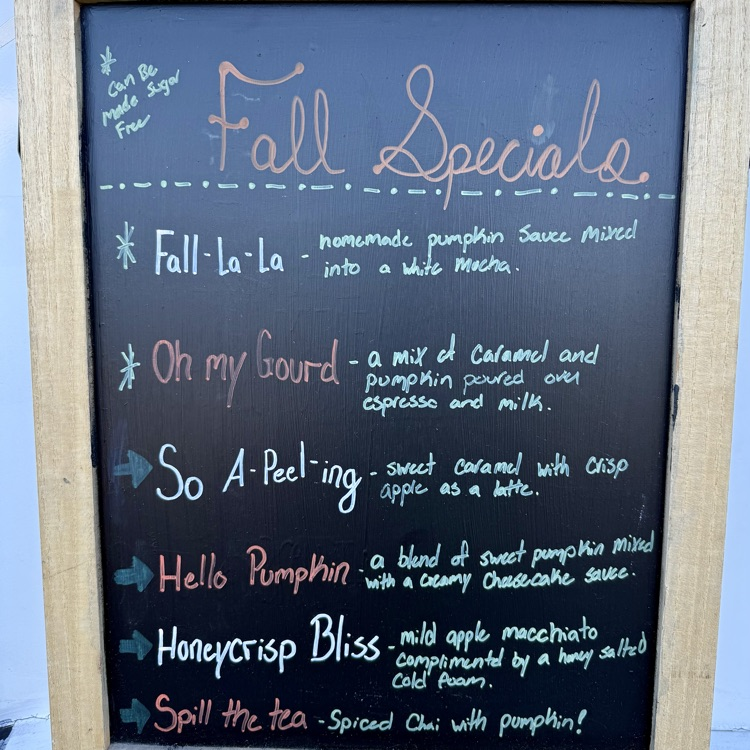 * Can Be
Made Sugar
Free
Fall Specials
* Fall-La-La - homemade pumpkin sauce mixed
into a white mocha.
* Oh my Gourd - a mix of caramel and
pumpkin poured over
espresso and milk.
→ So A-Peel-ing - sweet caramel with crisp
apple as a latte.
→ Hello Pumpkin - a blend of sweet pumpkin mixed
with a creamy cheesecake sauce.
→ Honeycrisp Bliss - mild apple macchiato
complimented by a honey salted
cold foam.
→ Spill the tea - Spiced Chai with pumpkin!